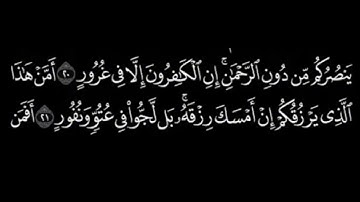 يَنصُرُكُم مِّن دُونِ ٱلرَّحْمَـٰنِ ۚ إِنِ ٱلْكَـٰفِرُونَ إِلَّا فِى غُرُورٍ ٢٠ أَمَّنْ هَـٰذَا
ٱلَّذِى يَرْزُقُكُمْ إِنْ أَمْسَكَ رِزْقَهُۥ ۚ بَل لَّجُّوا۟ فِى عُتُوٍّ وَنُفُورٍ ٢١ أَفَمَن